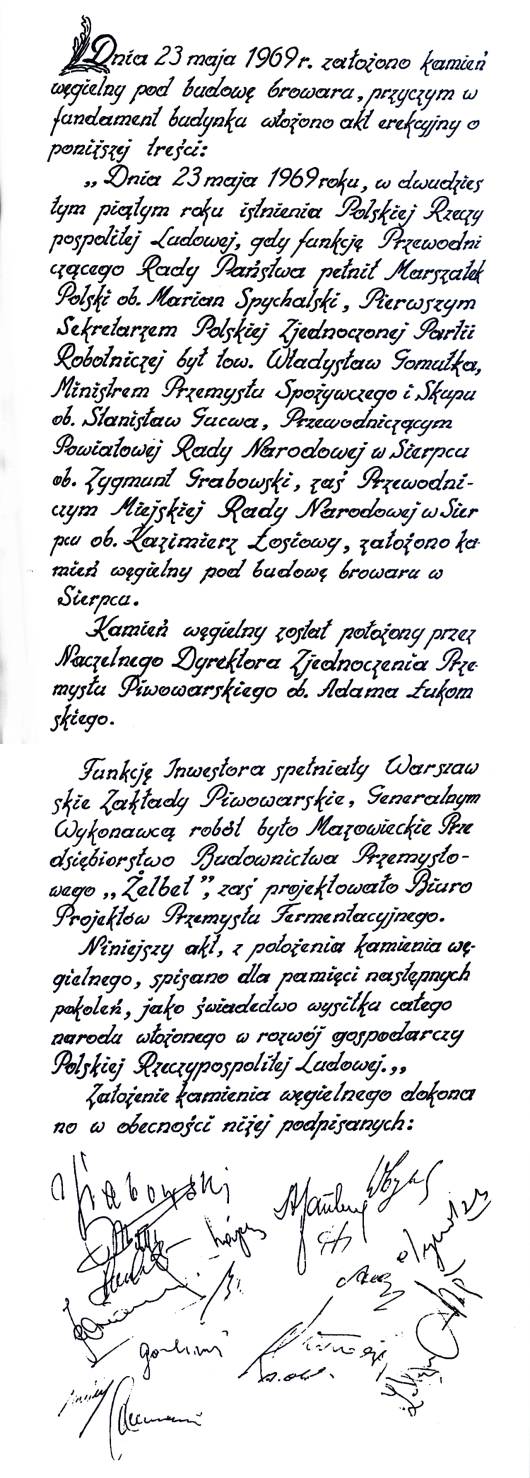 Dnia 23 maja 1969 r. założono kamień
węgielny pod budowę browara, przyczym w
fundament budynku włożono akt erekcyjny o
poniższej treści:
„Dnia 23 maja 1969 roku, w dwudzies
tym piątym roku istnienia Polskiej Rzeczy
pospolitej Ludowej, gdy funkcję Przewodni
czącego Rady Państwa pełnił Marszałek
Polski ob. Marian Spychalski, Pierwszym
Sekretarzem Polskiej Zjednoczonej Partii
Robotniczej był tow. Władysław Gomułka,
Ministrem Przemysłu Spożywczego i Skupu
ob. Stanisław Gucwa, Przewodniczącym
Powiatowej Rady Narodowej w Sierpcu
ob. Zygmunt Grabowski, zaś Przewodni-
czym Miejskiej Rady Narodowej w Sier
pcu ob. Kazimierz Łosiowy, założono ka-
mień węgielny pod budowę browaru w
Sierpcu.
Kamień węgielny został położony przez
Naczelnego Dyrektora Zjednoczenia Prze-
mysłu Piwowarskiego ob. Adama Łukom
skiego.
Funkcję Inwestora spełniały Warszaw
skie Zakłady Piwowarskie, Generalnym
Wykonawcą robót było Mazowieckie Prze
dsiębiorstwo Budownictwa Przemysło-
wego „Żelbet”, zaś projektowało Biuro
Projektów Przemysłu Fermentacyjnego.
Niniejszy akt, z położenia kamienia wę-
gielnego, spisano dla pamięci następnych
pokoleń, jako świadectwo wysiłku całego
narodu włożonego w rozwój gospodarczy
Polskiej Rzeczypospolitej Ludowej.„
Założenie kamienia węgielnego dokona
no w obecności niżej podpisanych:
Grabowski